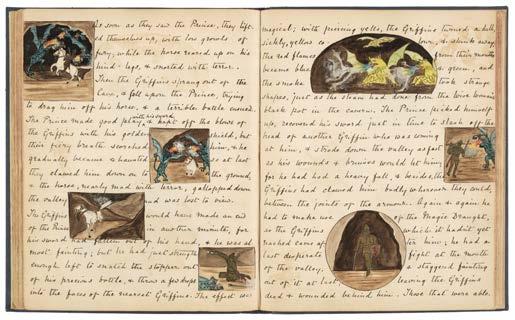 As soon as they saw the Prince, they lift-
ed themselves up, with low growls of
fury; while the horse reared up on his
hind-legs, & snorted with terror.
Then the Griffins sprang out of the
Cave, & fell upon the Prince, trying
to drag him off his horse, & a terrible battle ensued.
with his sword,
The Prince made good play & kept off the blows of
the Griffins with his golden shield, but
their fiery breath scorched him, & he
gradually became exhausted so at last
they clawed him down on to the ground,
& the horse, nearly mad with terror, galloped down
the valley and was lost to view.
The Griffins would have made an end
of the Prince in another minute, for
his sword had fallen out of his hand, & he was al-
most fainting; but he had just strength
enough left to snatch the stopper out
of his precious bottle, & throw a few drops
into the faces of the nearest Griffins. The effect was
magical; with piercing yells, the Griffins turned a dull,
sickly, yellow & shrunk away
the red flames from their mouths
became blue green, and
the smoke took strange
shapes, just as the steam had done from the wise woman's
black pot in the cavern. The Prince picked himself
up, recovered his sword just in time to slash off the
head of another Griffin who was coming
at him; & strode down the valley as fast
as his wounds & bruises would let him,
for he had had a heavy fall, & besides, the
Griffins had clawed him badly wherever they could,
between the joints of the armour. Again & again he
had to make use of the Magic Draught,
as the Griffins which it hadn't yet
reached came after him; he had a
last desperate fight at the mouth
of the valley, & staggered fainting
out of it at last, leaving the Griffins
dead & wounded behind him. Those that were able